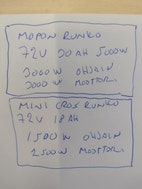 MOPON RUNKO
72V 20AH 5000W
3000W OHJAIN
3000W MOOTTORI
MINI CROSS RUNKO
72V 18AH
1500W OHJAIN
1500W MOOTTORI